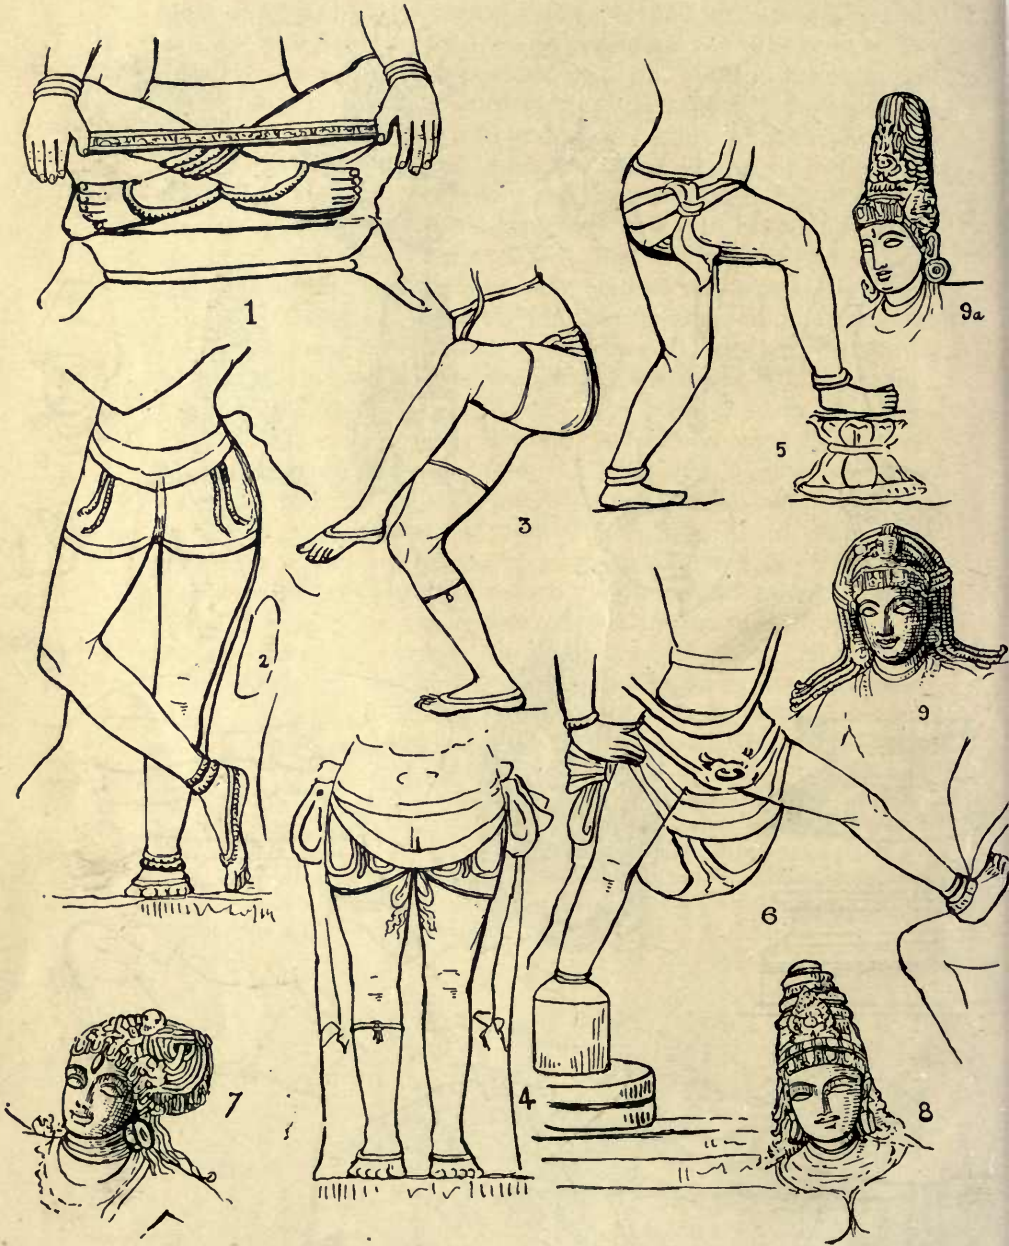 1
9a
5
3
2
9
6
7
4
8